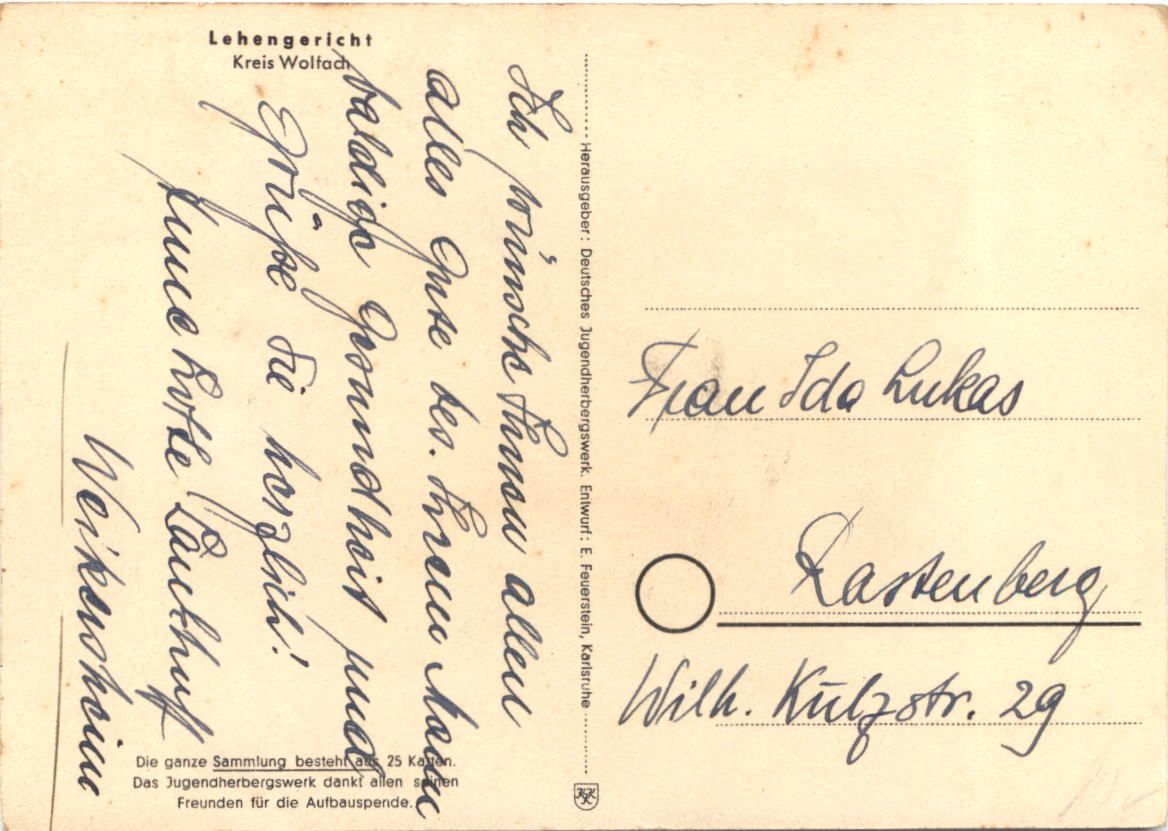 Lehengericht
Kreis Wolfach
Ich wünsche Ihnen allen
alles Gute bes. Ihrem Mann
baldige Gesundheit und
grüße Sie herzlich!
Ihre Lotte
Weikersheim
Die ganze Sammlung besteht aus 25 Karten.
Das Jugendherbergswerk dankt allen seinen
Freunden für die Aufbauspende.
Herausgeber: Deutsches Jugendherbergswerk. Entwurf: E. Feuerstein, Karlsruhe
Frau Ida Lukas
Rastenberg
Wilh. Külzstr. 29